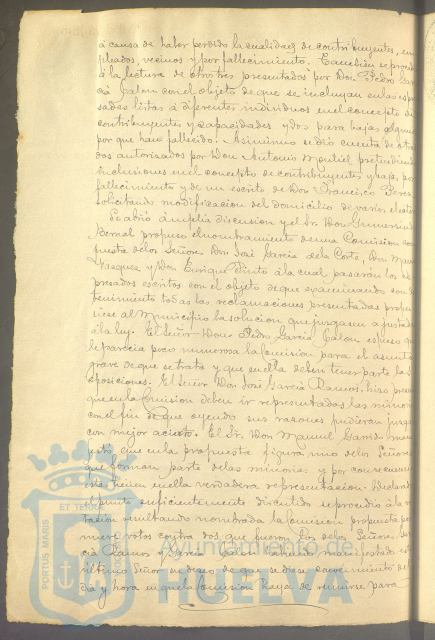 á causa de haber perdido la cualidad de contribuyentes, em
pleados, vecinos y por fallecimiento. Tambien se procedió
á la lectura de otros tres presentados por Don Pedro Gar
cía Jalon con el objeto de que se incluyan en las espre
sadas listas á diferentes individuos en el concepto de
contribuyentes y capacidades y dos para bajas algunos
por que han fallecido. Asimismo se dió cuenta de otros
dos autorizados por Don Antonio Montiel pretendiendo
inclusiones en el concepto de contribuyentes y bajas por
fallecimiento y de un escrito de Don Francisco Perez
solicitando modificacion del domicilio de varios
Se abrió ámplia discusion y el Sr. Don Gumersindo
Bernal propuso el nombramiento de una Comision com
puesta de los Señores Don José García de la Corte, Don Manuel
Vazquez y Don Enrique Pinto á la cual pasarán los es
presados escritos con el objeto de que examinando con de
tenimiento todas las reclamaciones presentadas propu
siese al Municipio la solucion que juzgasen ajustada
á la ley. El Señor Don Pedro García Jalon espuso que
le parecia poco numerosa la Comision para el asunto
grave de que se trata y que en ella deben tener parte las
oposiciones. El Señor Don José García Ramos hizo presente
que en la Comision deben ir representadas las minorias
con el fin de que oyendo sus razones pudieran juzgar
con mejor acierto. El Sr. Don Manuel Garrido mani
festó que en la propuesta figura uno de los Señores
que forman parte de las minorias y por consecuencia
esta tienen en ella verdadera representacion. Declarado
el punto suficientemente discutido se procedió á la vo
tacion resultando nombrada la Comision propuesta por
nueve votos contra dos que fueron los de los Señores Gar
cía Ramos y García Jalon
último Señor su deseo de que se diese conocimiento del
dia y hora en que la Comision haya de reunirse para
PORTUS MARIS
ET TERRAE
Ayuntamiento de
HUELVA